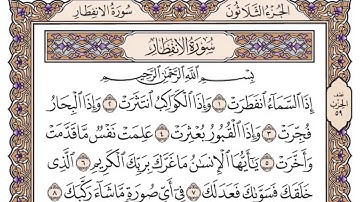 سُورَةُ الِانفِطَارِ
الجُزْءُ الثَّلَاثُونَ
سُورَةُ الِانفِطَارِ
بِسْمِ اللَّهِ الرَّحْمَٰنِ الرَّحِيمِ
إِذَا السَّمَاءُ انفَطَرَتْ ١ وَإِذَا الْكَوَاكِبُ انتَثَرَتْ ٢ وَإِذَا الْبِحَارُ
فُجِّرَتْ ٣ وَإِذَا الْقُبُورُ بُعْثِرَتْ ٤ عَلِمَتْ نَفْسٌ مَّا قَدَّمَتْ
وَأَخَّرَتْ ٥ يَٰٓأَيُّهَا الْإِنسَٰنُ مَا غَرَّكَ بِرَبِّكَ الْكَرِيمِ ٦ الَّذِي
خَلَقَكَ فَسَوَّىٰكَ فَعَدَلَكَ ٧ فِىٓ أَىِّ صُورَةٍ مَّا شَآءَ رَكَّبَكَ ٨
الحِزْبُ
٥٩